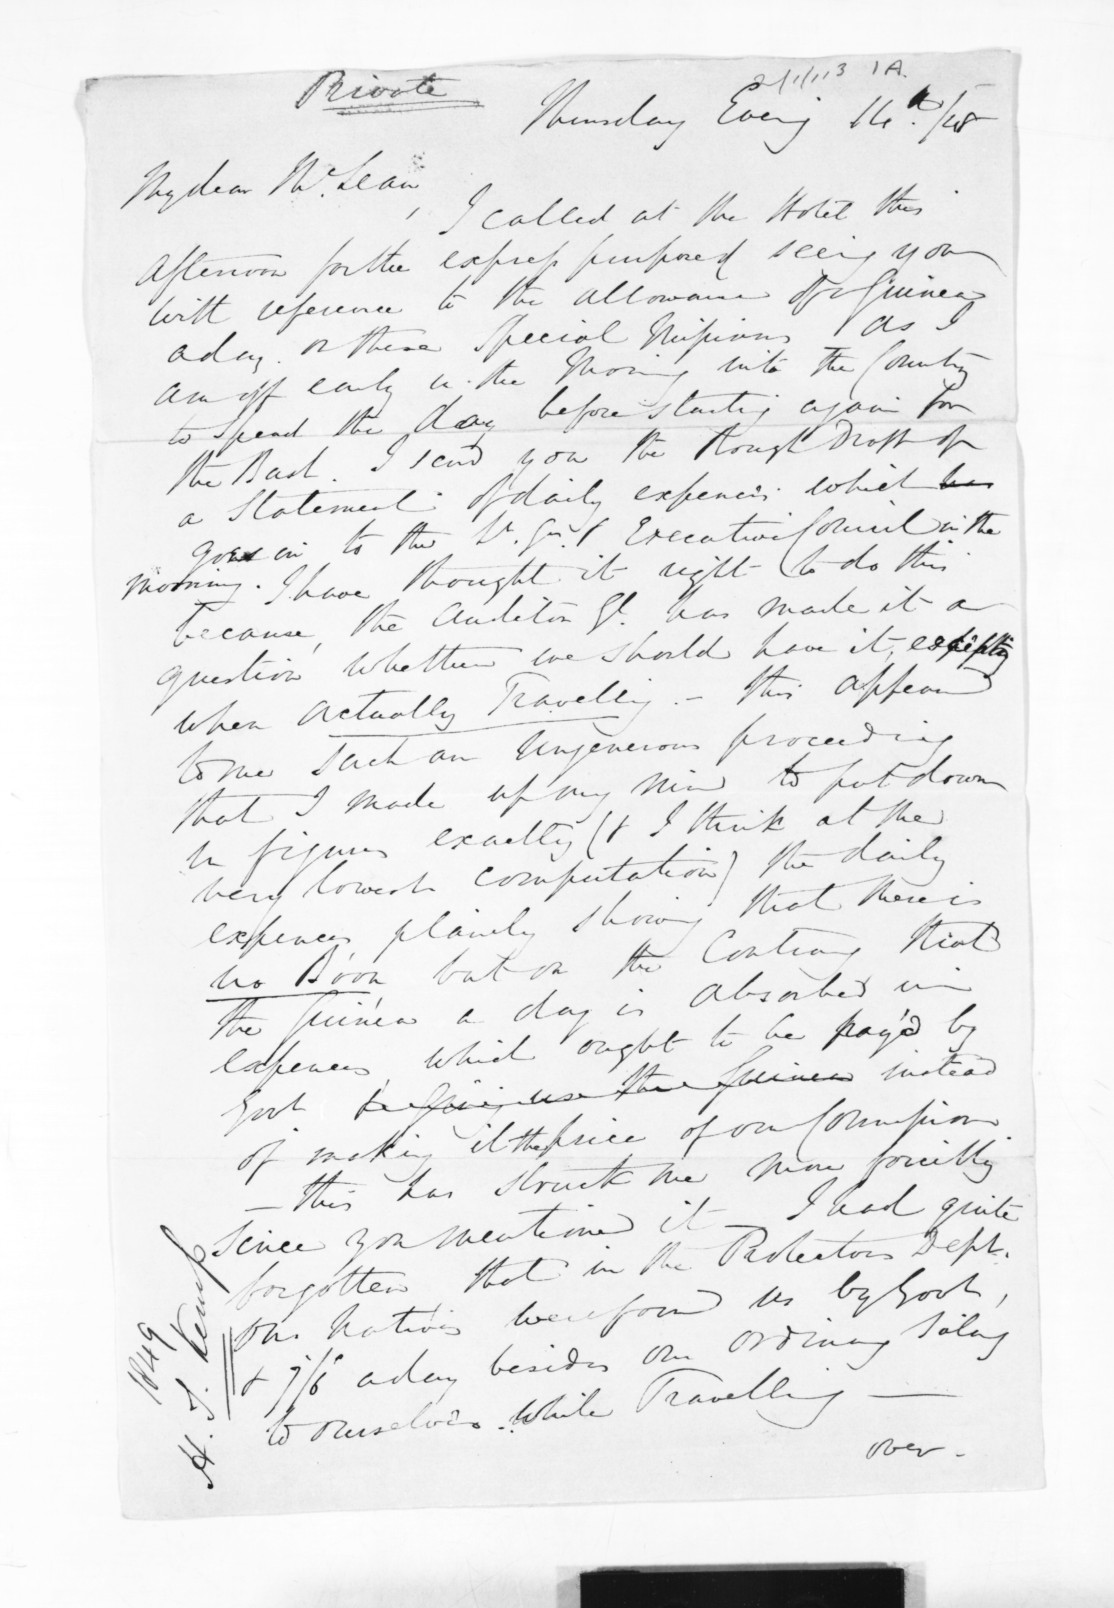 Private
Thursday Eveng 14th /48
My dear Mc.Lean,
I called at the Hotel this
afternoon for the express purpose of seeing you
with reference to the allowance of a Guinea
a day on these Special Missions as I
am off early in the Morning into the Country
to spend the day before starting again for
the East. I send you the Rough Draft of
a Statement of daily expences which has
goes in to the Lt. Govr. & Executive Council in the
morning. I have thought it right to do this
because, the Auditor Gl. has made it a
question whether we should have it, excepting
when actually Travelling. - this appeared
to me such an ungenerous proceeding
that I made up my mind to put down
in figures exactly (& I think at the
very lowest computation) the daily
expences plainly showing that there is
no Boon but on the contrary that
the Guinea a day is absorbed in
expences which ought to be pay'd by
Govt to give us the Guinea instead
of making it the price of our Commission
- this has struck me more forcibly
since you mentioned it - I had quite
forgotten that in the Protectors Dept.
our Natives were found us by Govt,
& 7/6 a day besides our ordinary Salary
to ourselves while Travelling —
over -
1849
H. T. Kemp